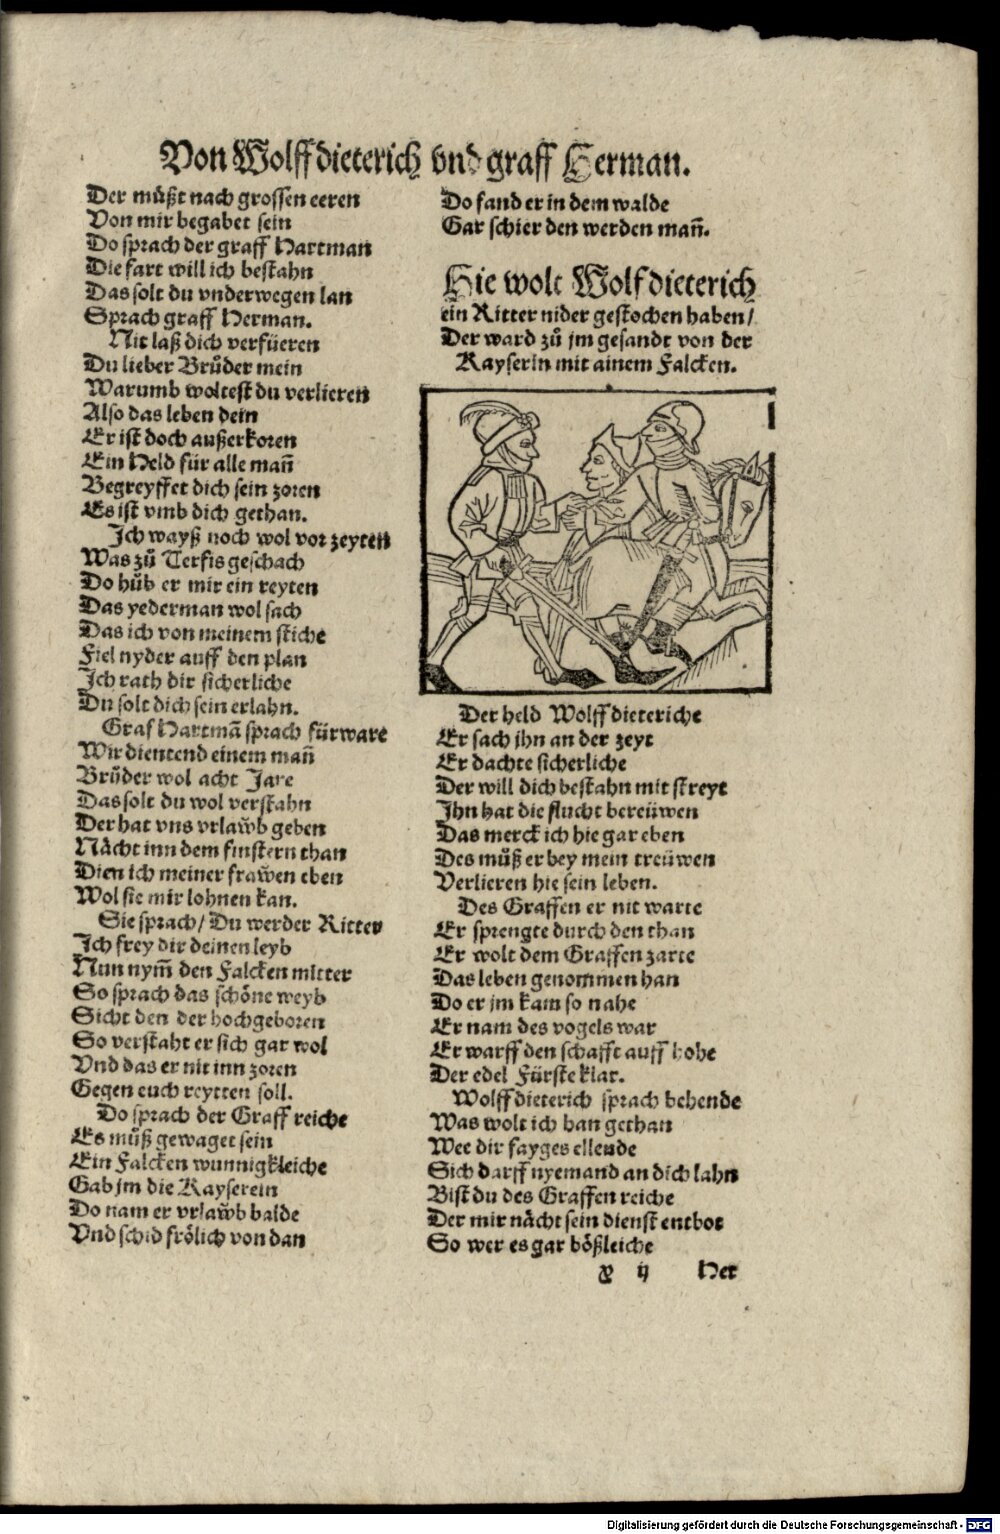 Von Wolffdieterich vnd graff Herman.
Der můßt nach grossen eeren
Von mir begabet sein
Do sprach der graff Hartman
Die fart will ich bestahn
Das solt du vnderwegen lan
Sprach graff Herman.
Nit laß dich verfüeren
Du lieber Brůder mein
Warumb woltest du verlieren
Also das leben dein
Er ist doch außerkoren
Ein Held für alle mañ
Begreyffet dich sein zoren
Es ist vmb dich gethan.
Ich wayß noch wol vor zeyten
Was zů Terfis geschach
Do hůb er mir ein reyten
Das yederman wol sach
Das ich von meinem stiche
Fiel nyder auff den plan
Ich rath dir sicherliche
Du solt dich sein erlahn.
Graf Hartmã sprach fürware
Wir dientend einem mañ
Brůder wol acht Jare
Das solt du wol verstahn
Der hat vns vrlaw̃b geben
Nächt inn dem finstern than
Dien ich meiner fraw̃en eben
Wol sie mir lohnen kan.
Sie sprach/ Du werder Ritter
Ich frey dir deinen leyb
Nun nym̃ den Falcken mitter
So sprach das schöne weyb
Sicht den der hochgeboren
So verstaht er sich gar wol
Vnd das er nit inn zoren
Gegen euch reytten soll.
Do sprach der Graff reiche
Es můß gewaget sein
Ein Falcken wunnigkleiche
Gab jm die Kayserein
Do nam er vrlaw̃b balde
Vnd schid frölich von dan
Do fand er in dem walde
Gar schier den werden mañ.
Hie wolt Wolfdieterich
ein Ritter nider gestochen haben/
Der ward zů jm gesandt von der
Kayserin mit ainem Falcken.
Der held Wolffdieteriche
Er sach jhn an der zeyt
Er dachte sicherliche
Der will dich bestahn mit streyt
Ihn hat die flucht bereüwen
Das merck ich hie gar eben
Des můß er bey mein treüwen
Verlieren hie sein leben.
Des Graffen er nit warte
Er sprengte durch den than
Er wolt dem Graffen zarte
Das leben genommen han
Do er jm kam so nahe
Er nam des vogels war
Er warff den schafft auff hohe
Der edel Fürste klar.
Wolffdieterich sprach behende
Was wolt ich han gethan
Wee dir fayges ellende
Sich darff nyemand an dich lahn
Bist du des Graffen reiche
Der mir nächt sein dienst entbot
So wer es gar bößleiche
ij Her
Digitalisierung gefördert durch die Deutsche Forschungsgemeinschaft - DFG